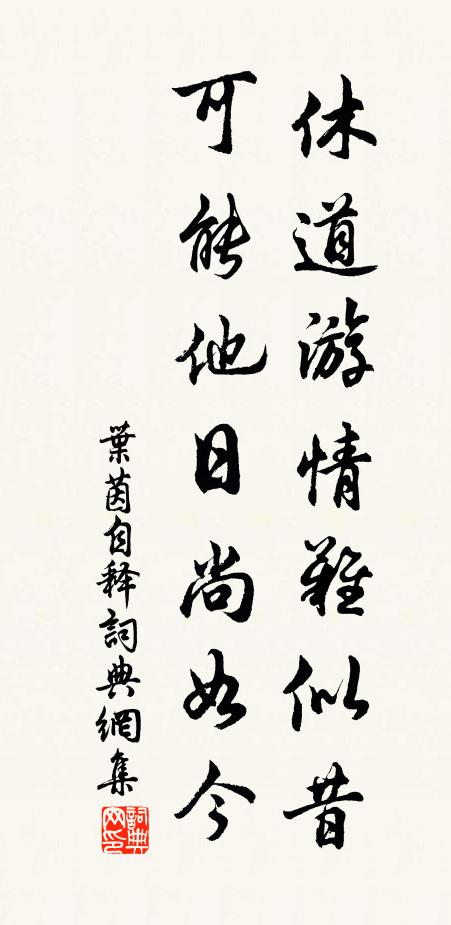 休道游情難似昔
可能他日尚如今
葉茵自释詞典網集
詞典网印